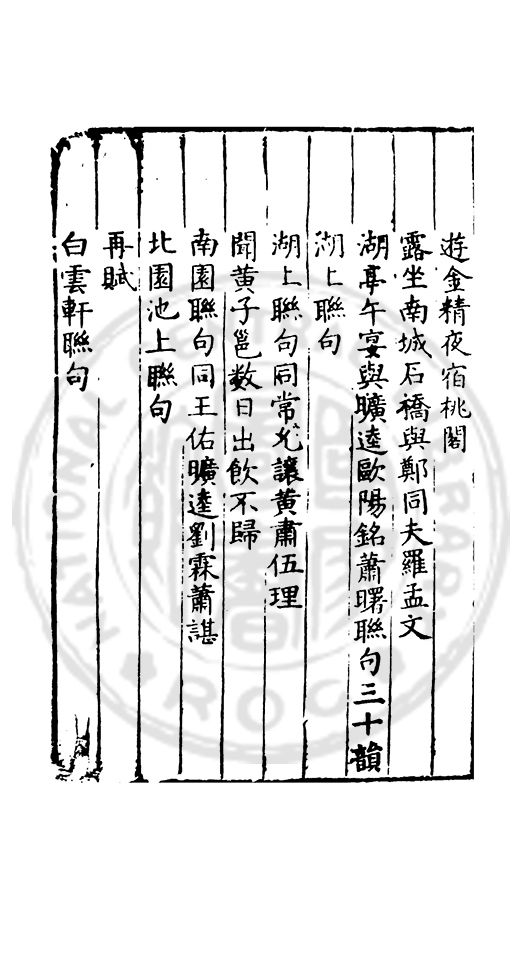 遊金精夜宿桃閣
露坐南城石橋與鄭同夫羅孟文
湖亭午宴與曠逵歐陽銘蕭曙聯句三十韻
湖上聯句
湖上聯句同常允讓黃肅伍理
聞黃子邕数日出飲不歸
南園聯句同王佑曠逵劉霖蕭諶
北園池上聯句
再賦
白雲軒聯句
NATIONAL CENTRAL LIBRARY
R.O.C.